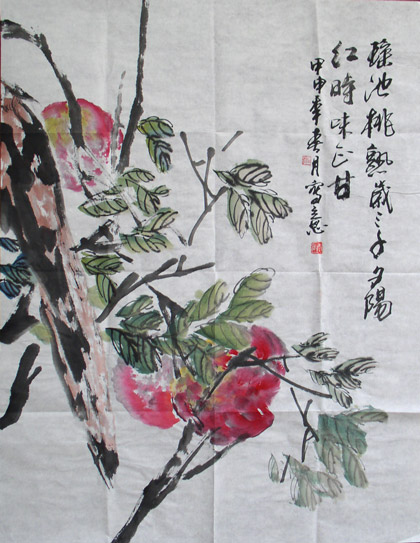 瑤池桃熟歲三千夕陽
紅時味正甘
甲申年春月寫